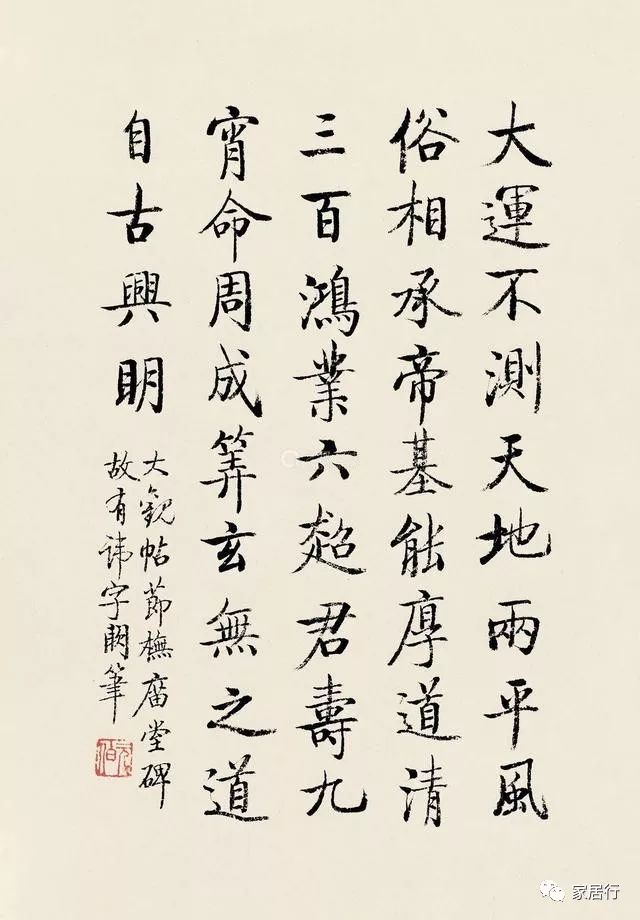 大運不測天地兩平風
俗相承帝基能厚道清
三百鴻業六超君壽九
霄命周成筭玄無之道
自古興明
大觀帖節橅廟堂碑
故有諱字闕筆
家居行